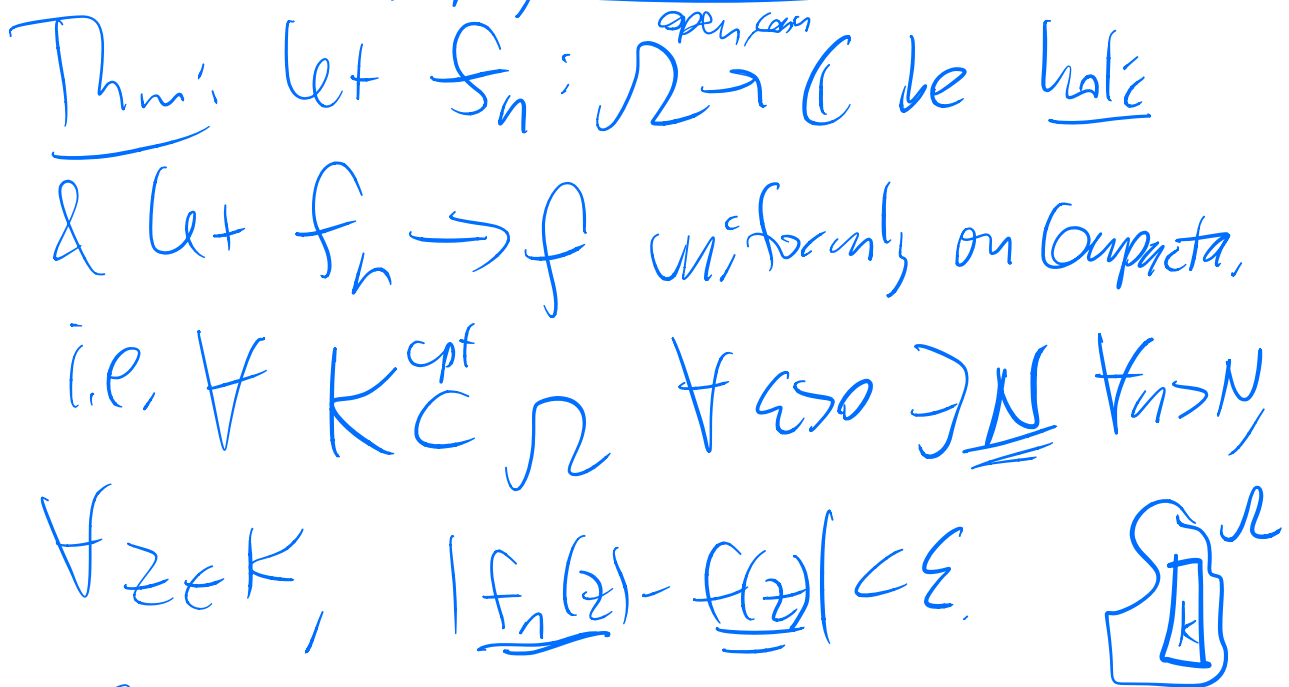 Thm: let fₙ: Ω → ℂ be holc
open, conn
& let fₙ → f uniformly on compacta,
i.e, ∀ K ⊂ Ω ∀ ε>0 ∃ N ∀n>N,
cpt
∀z∈K, |fₙ(z) - f(z)| < ε.
Ω
K